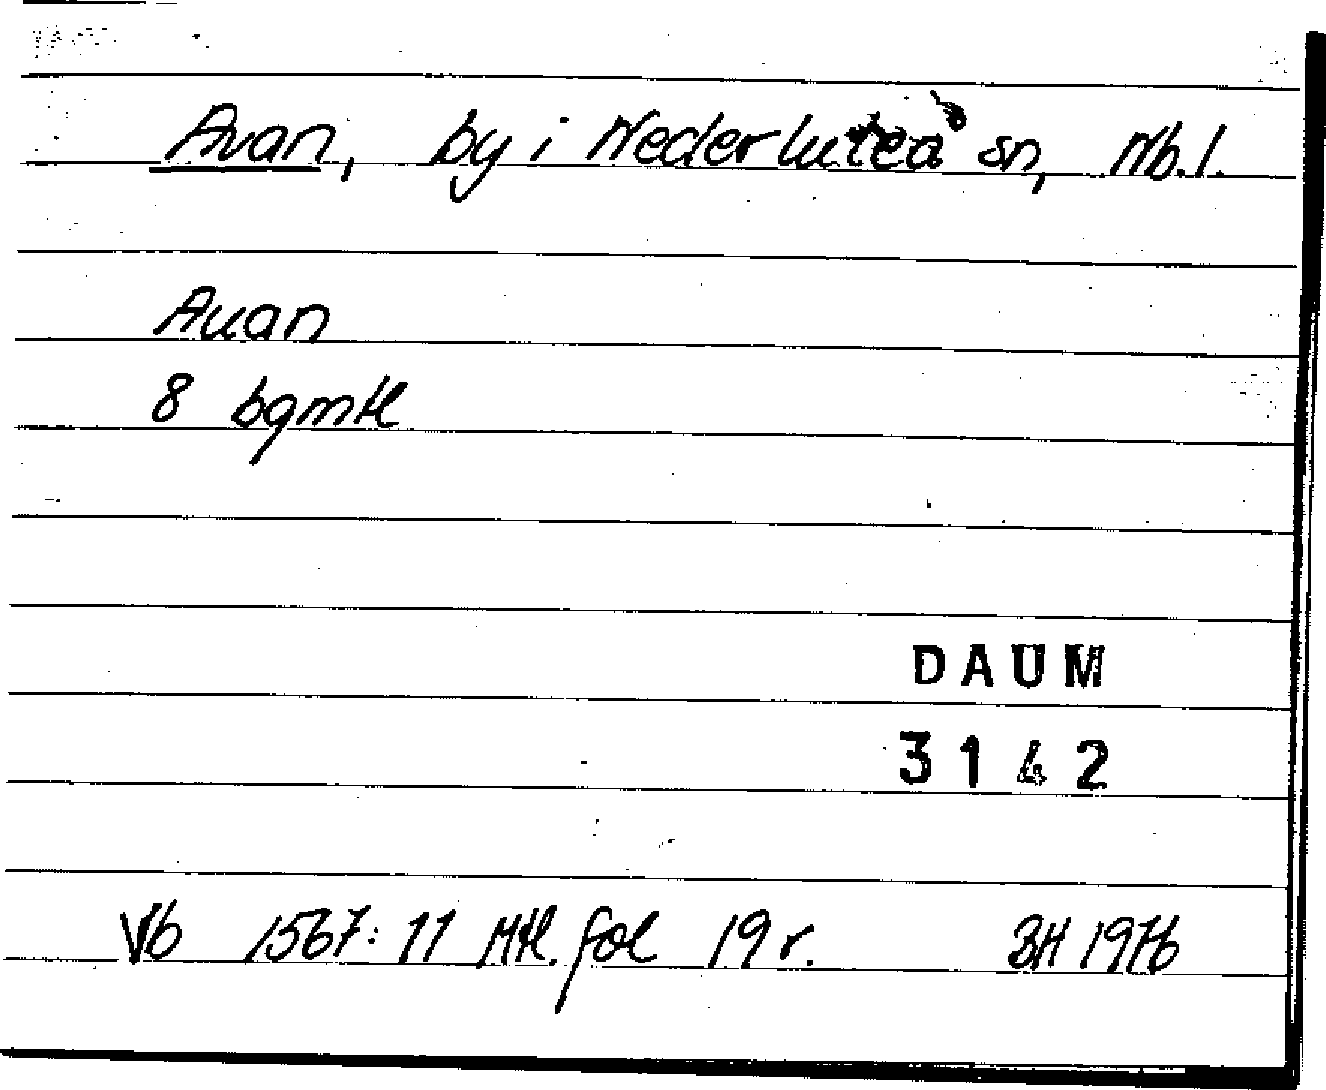 Avan, by i Nederluleå sn, Nb.l.
Auan
8 bgmtl
DAUM
3142
Vb 1567:11 Mtl. fol 19 r. BH 1976